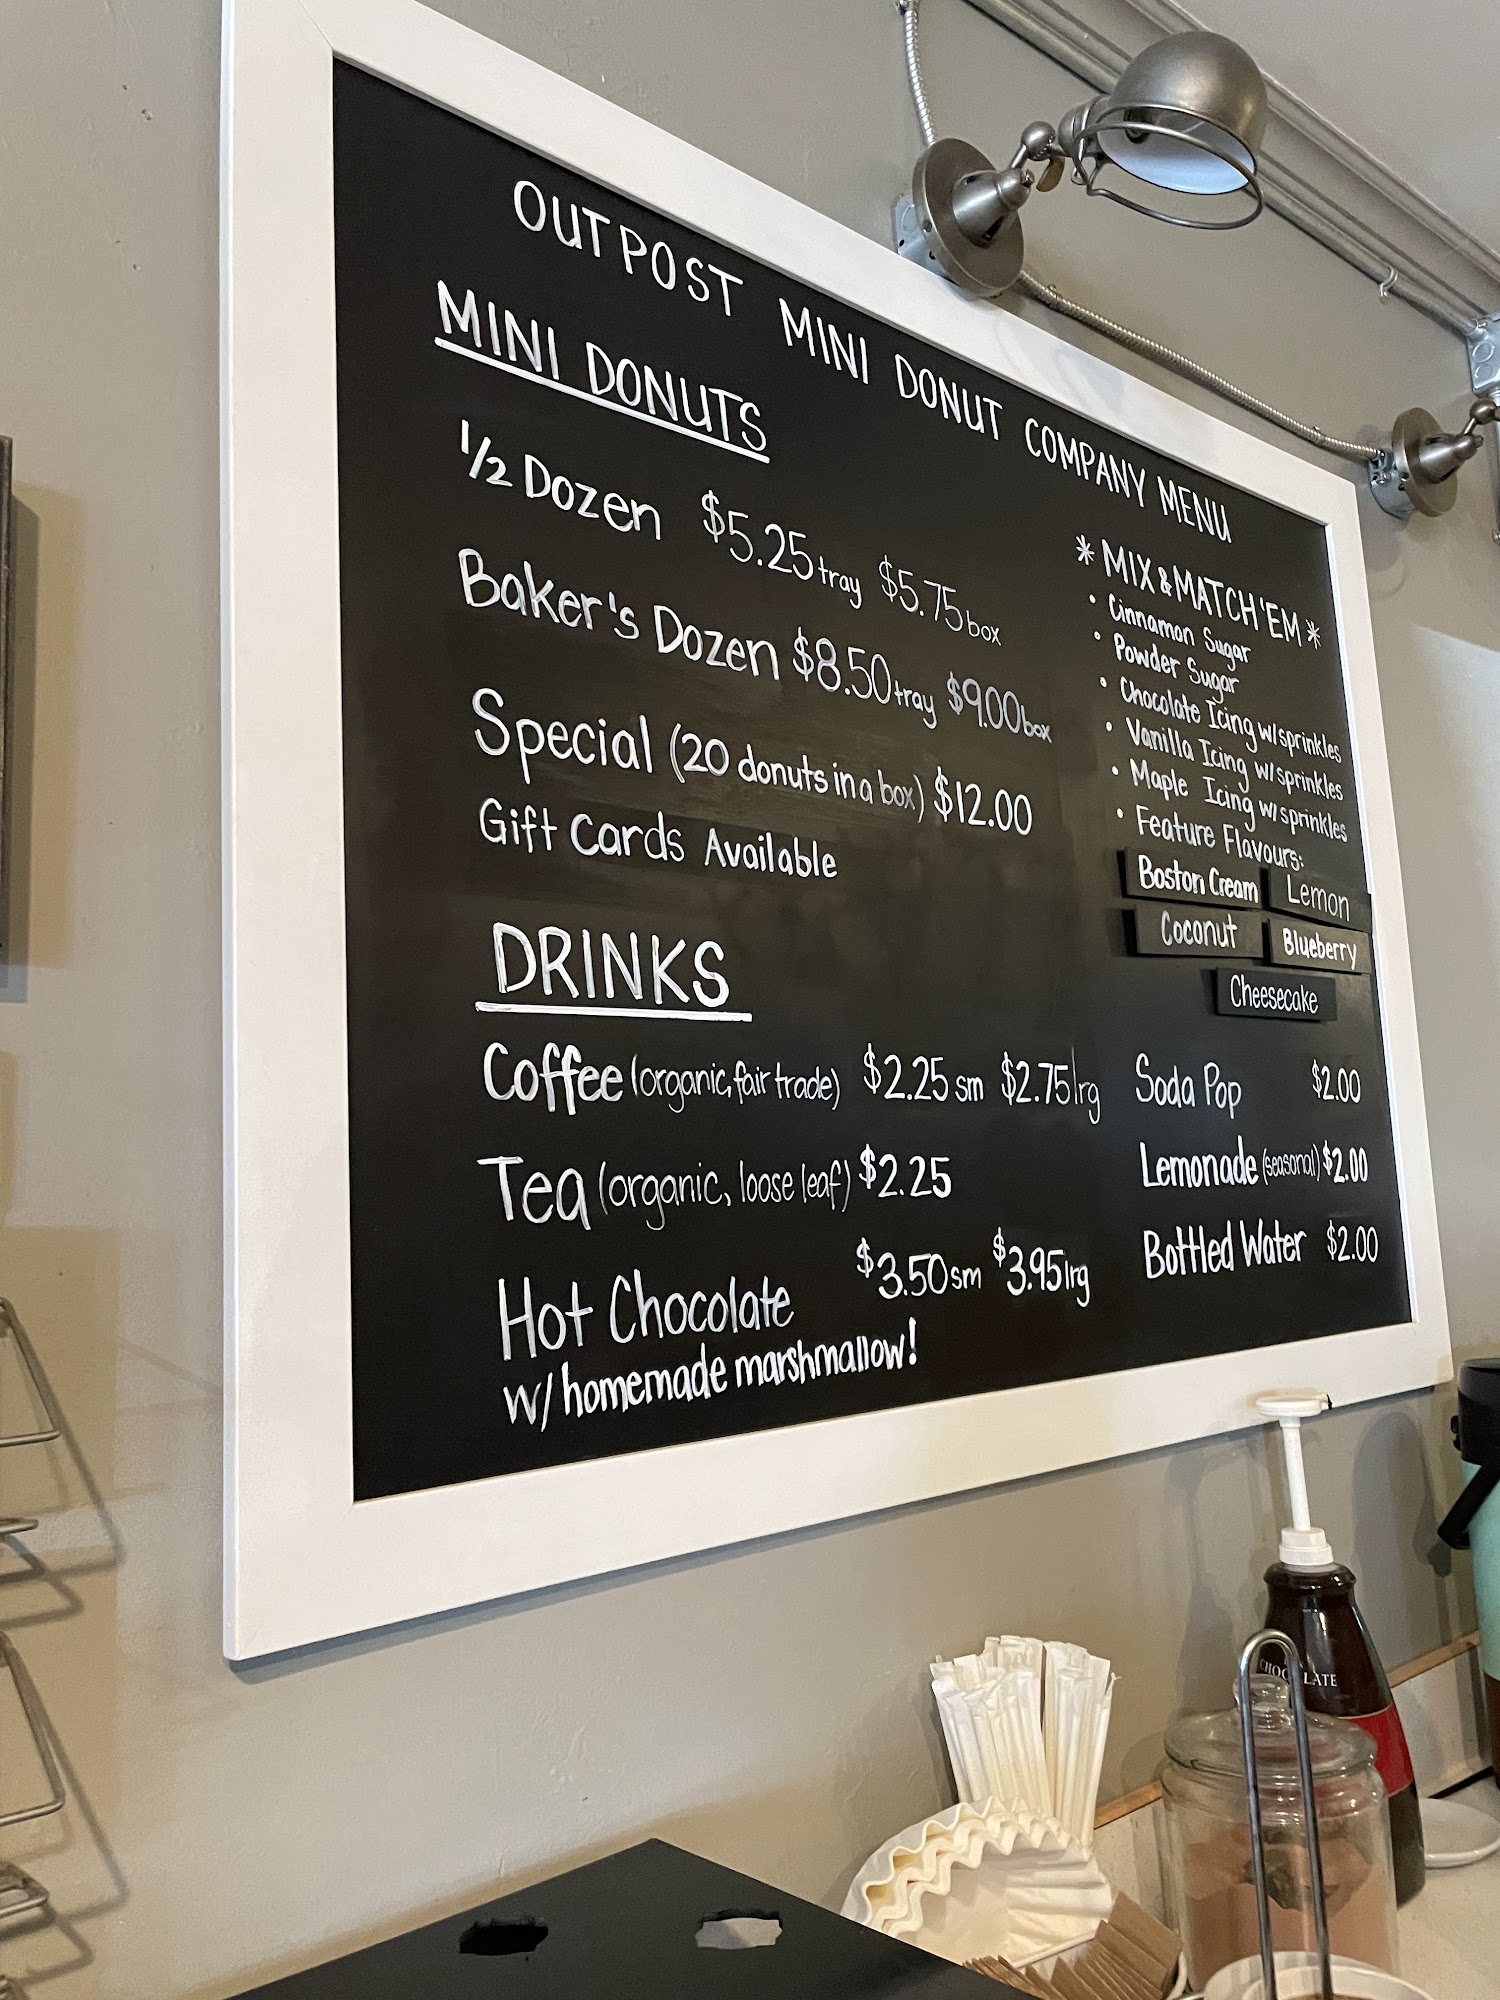 OUTPOST MINI DONUT COMPANY MENU
MINI DONUTS
1/2 Dozen $5.25 tray $5.75 box
Baker's Dozen $8.50 tray $9.00 box
Special (20 donuts in a box) $12.00
Gift Cards Available
* MIX & MATCH 'EM *
• Cinnamon Sugar
• Powder Sugar
• Chocolate Icing w/ sprinkles
• Vanilla Icing w/ sprinkles
• Maple Icing w/ sprinkles
• Feature Flavours:
Boston Cream Lemon
Coconut Blueberry
Cheesecake
DRINKS
Coffee (organic, fair trade) $2.25 sm $2.75 lrg
Tea (organic, loose leaf) $2.25
Hot Chocolate $3.50 sm $3.95 lrg
w/ homemade marshmallow!
Soda Pop $2.00
Lemonade (seasonal) $2.00
Bottled Water $2.00
CHOCOLATE